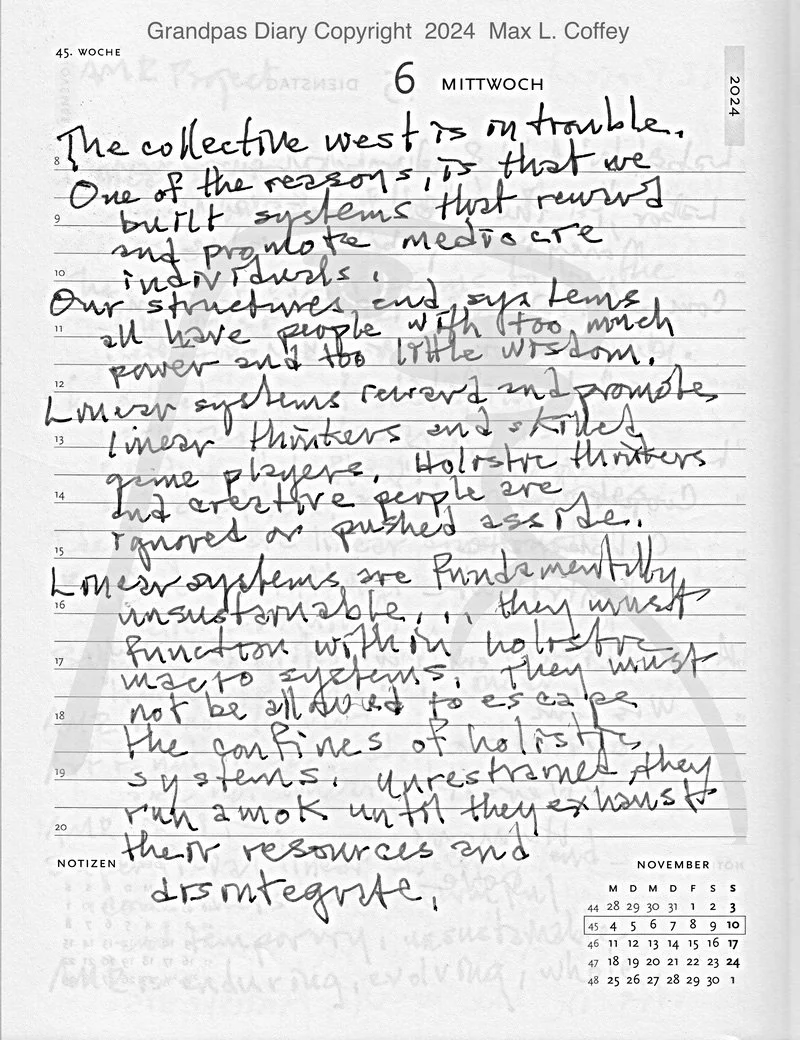 Grandpas Diary Copyright 2024 Max L. Coffey
45. WOCHE
6 MITTWOCH
2024
The collective west is in trouble.
8
One of the reasons, is that we
9 built systems that reward
and promote mediocre
10 individuals.
Our structures and systems
11 all have people with too much
power and too little wisdom.
12
Linear systems reward and promote
13 linear thinkers and skilled
game players. Holistic thinkers
14 and creative people are
ignored or pushed asside.
15
Linear systems are fundamentally
16 unsustainable... they must
function within holistic
17 macro systems. They must
not be allowed to escape
18 the confines of holistic
19 systems. Unrestrained, they
run amok until they exhaust
20 their resources and
disintegrate.
NOTIZEN
NOVEMBER
M D M D F S S
44 28 29 30 31 1 2 3
45 4 5 6 7 8 9 10
46 11 12 13 14 15 16 17
47 18 19 20 21 22 23 24
48 25 26 27 28 29 30 1